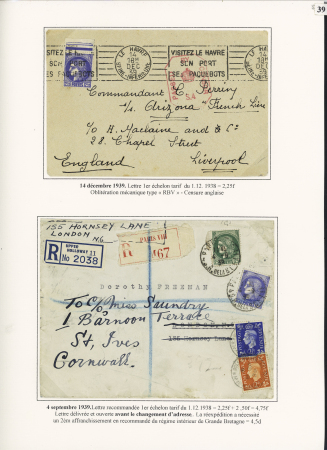 39
VISITEZ LE HAVRE
SON PORT
SES PAQUEBOTS
LE HAVRE
14
18H
DEC
39
VISITEZ LE HAVRE
SON PORT
SES PAQUEBOTS
LE HAVRE
14
18H
DEC
Commandant C. Perrin
s/s. Arizona "French Line"
c/o H. Maclaine and Cº
22. Chapel Street
England Liverpool
14 décembre 1939. Lettre 1er échelon tarif du 1.12. 1938 = 2,25f
Oblitération mécanique type « RBV » - Censure anglaise
155 HORNSEY LANE
LONDON N6
R
UPPER
HOLLOWAY 11
No 2038
R
PARIS VIII
167
Dorothy FREEMAN
To C/o Miss Saundry
1 Barnoon Terrace
155 Hornsey Lane
St, Ives
Cornwall.
4 septembre 1939.Lettre recommandée 1er échelon tarif du 1.12. 1938 = 2,25f+ 2 .50f = 4,75f
Lettre délivrée et ouverte avant le changement d'adresse. La réexpédition a nécessité
un 2ème affranchissement en recommandé du régime intérieur de Grande Bretagne = 4,5d